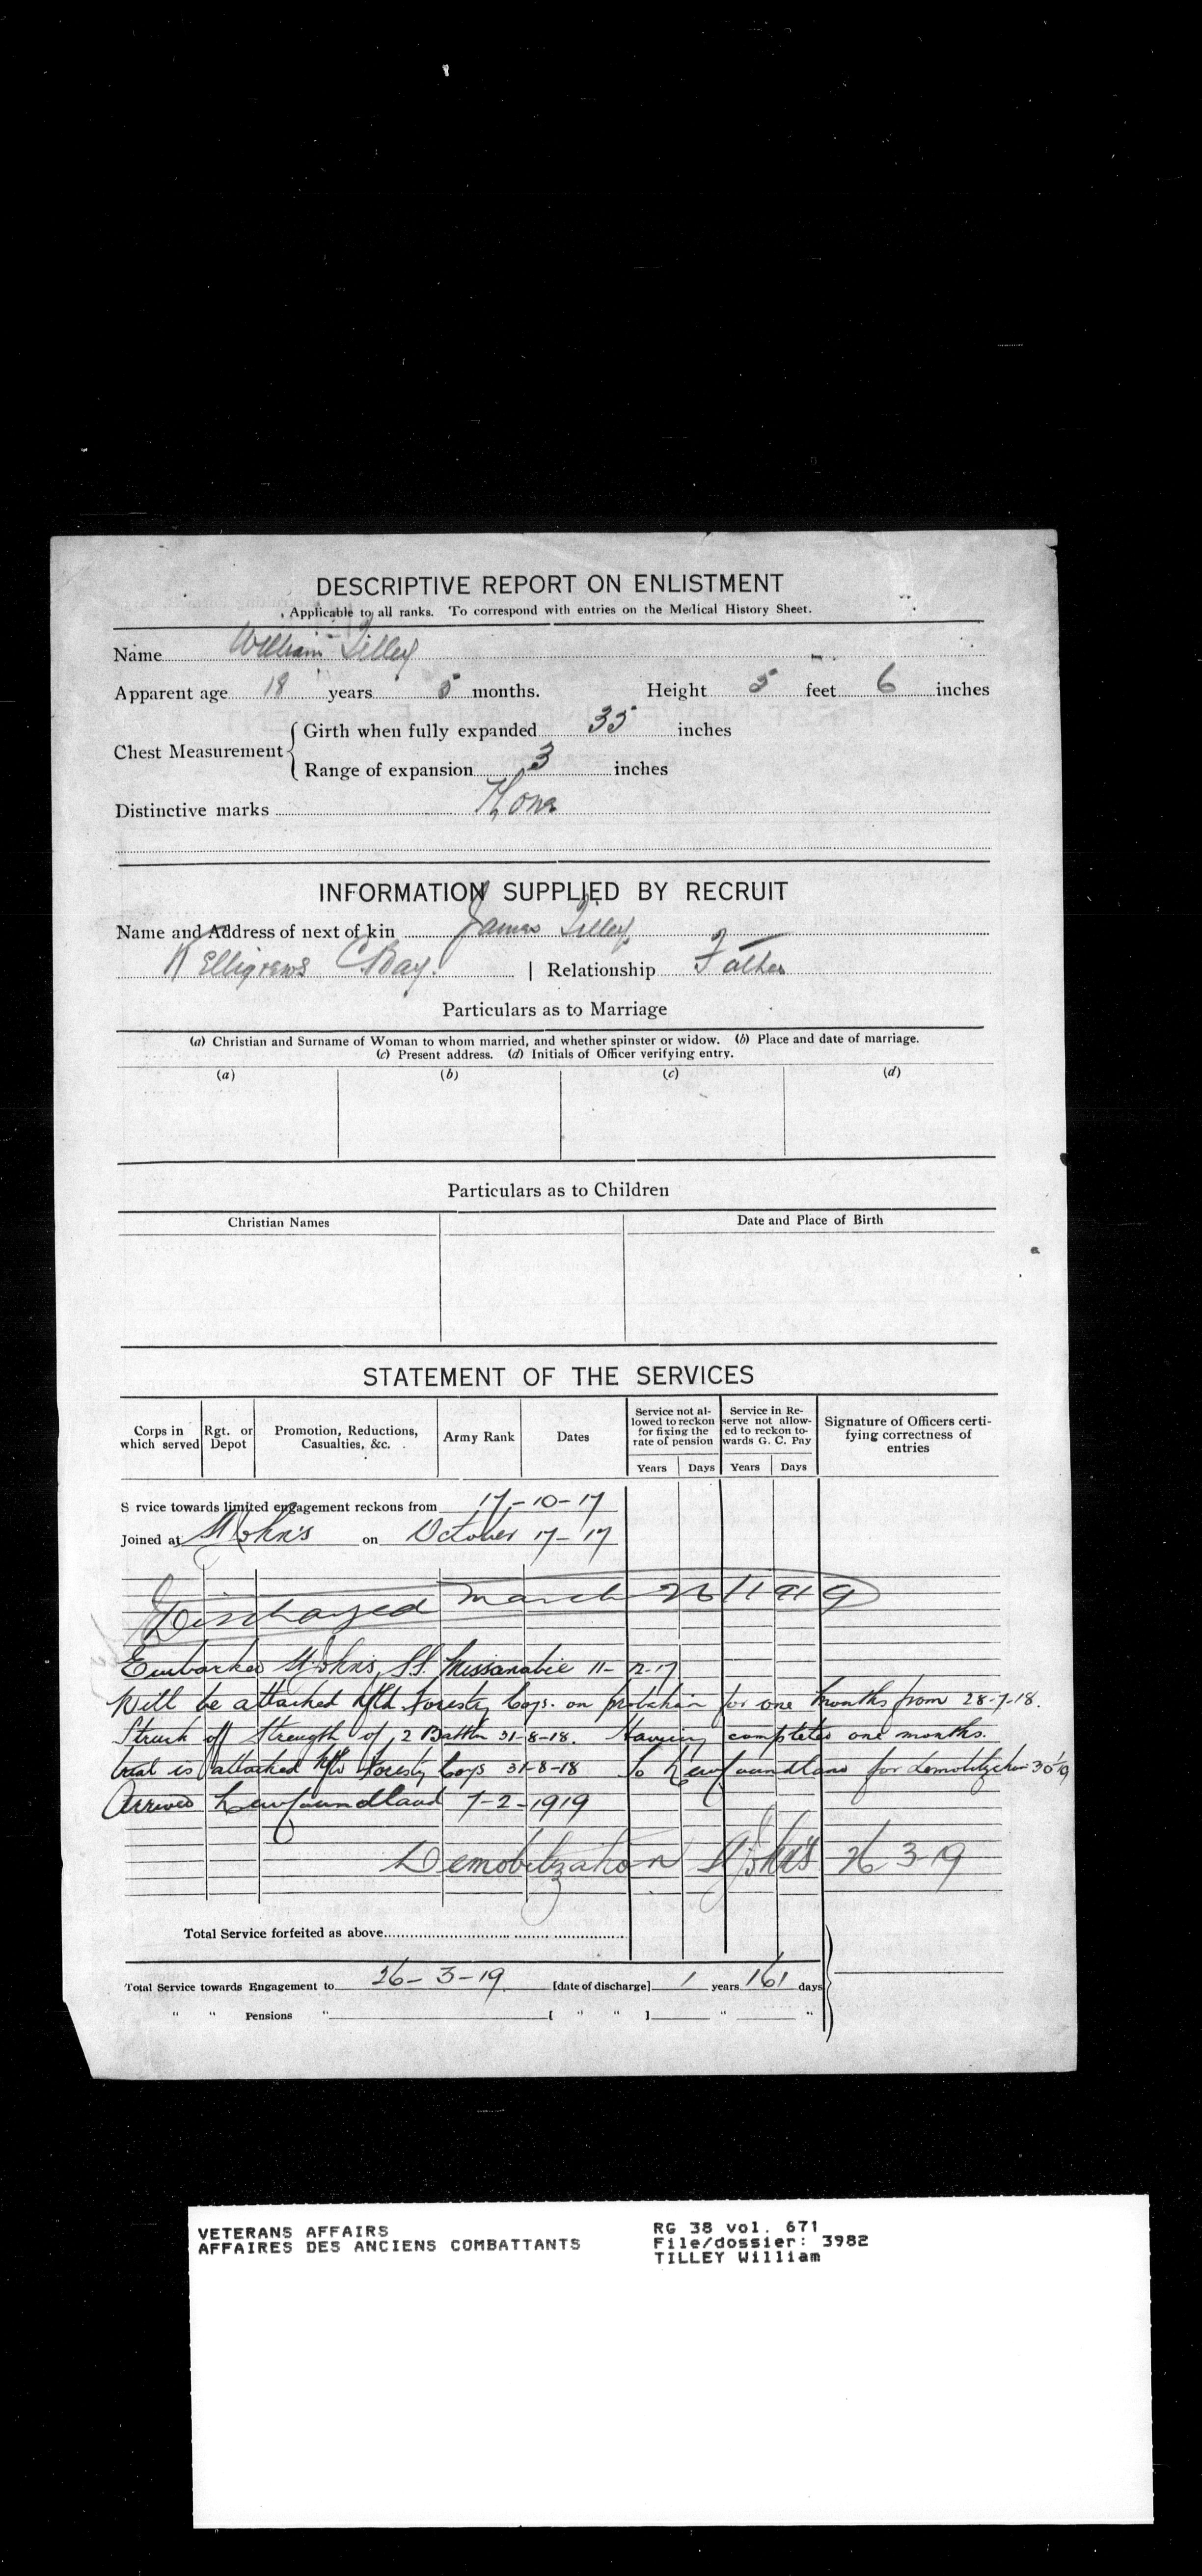 DESCRIPTIVE REPORT ON ENLISTMENT
Applicable to all ranks. To correspond with entries on the Medical History Sheet.
Name William Tilley
Apparent age 18 years 5 months. Height 5 feet 6 inches
Chest Measurement { Girth when fully expanded 35 inches
Range of expansion 3 inches
Distinctive marks None
INFORMATION SUPPLIED BY RECRUIT
Name and Address of next of kin James Tilley
Kelligrews C Bay. | Relationship Father
Particulars as to Marriage
(a) Christian and Surname of Woman to whom married, and whether spinster or widow. (b) Place and date of marriage.
(c) Present address. (d) Initials of Officer verifying entry.
(a) (b) (c) (d)
Particulars as to Children
Christian Names Date and Place of Birth
STATEMENT OF THE SERVICES
Corps in which served Rgt. or Depot Promotion, Reductions, Casualties, &c. Army Rank Dates Service not allowed to reckon for fixing the rate of pension Service in Reserve not allowed to reckon towards G. C. Pay Signature of Officers certifying correctness of entries
Years Days Years Days
S rvice towards limited engagement reckons from 17-10-17
Joined at St John's on October 17-17
Discharged March 26/1919
Embarked St Johns, SS. Missanabie 11-12-17
Will be attached Nfld Forestry Corps. on probation for one months from 28-7-18.
Struck off Strength of 2 Battn 31-8-18. Having completed one months.
trial is attached Nfld Forestry Corps 31-8-18 To Newfoundland for demobilization 30/1/19
Arrived Newfoundland 7-2-1919
Demobilization St John's 26 3-19
Total Service forfeited as above
Total Service towards Engagement to 26-3-19 [date of discharge] 1 years 161 days
" " Pensions " [ " " ] " "
VETERANS AFFAIRS
AFFAIRES DES ANCIENS COMBATTANTS
RG 38 vol. 671
File/dossier: 3982
TILLEY William